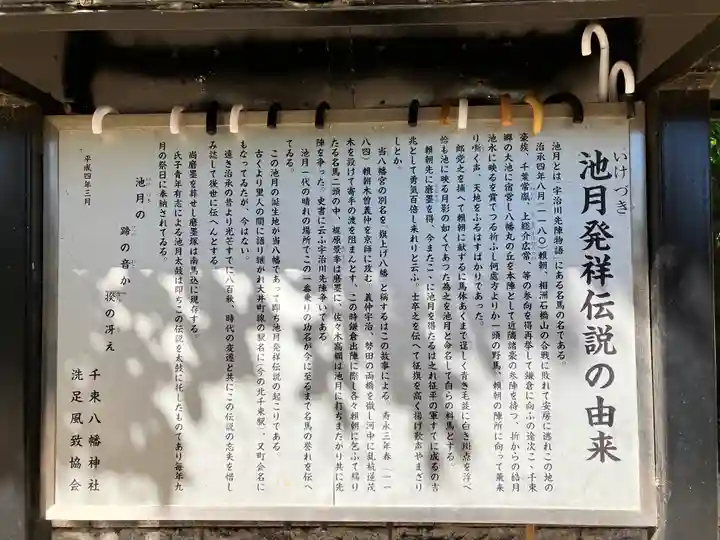 池月発祥伝説の由来
いけづき
池月とは「宇治川先陣物語」にある名馬の名である。
治承四年八月(一一八〇)頼朝、相洲石橋山の合戦に敗れて安房に逃れこの地の
豪族、千葉常胤、上総介広常、等の参向を得再挙して鎌倉に向ふの途次こゝ千束
郷の大池に宿営し八幡丸の丘を本陣として近隣諸豪の参陣を待つ、折からの皓月
池水に映るを賞でつゝ折ふし何処方よりか一頭の野馬、頼朝の陣所に向って飛来
り嘶く声、天地をふるはすばかりであった。
郎党之を捕へて頼朝に献ずるに馬体あくまで逞しく青き毛並に白き斑点を浮べ
恰も池に映る月影の如くであった為之を池月と命名して自らの料馬とする
頼朝先に磨墨を得、今またこゝに池月を得たるは之れ征平の軍すでに成るの吉
兆として勇気百倍し来れりと云ふ。士卒之を伝へて征旗を高く揚げ歓声やまざり
しとか。
当八幡宮の別名を「旗上げ八幡」と称するはこの故事による。寿永三年春(一一
八四)頼朝木曽義仲を京師に攻む 義仲宇治、勢田の両橋を徹し河中に乱杭逆茂
木を設けて寄手の渡を阻まんとす、この時鎌倉出陣に際し各々頼朝に乞ふて賜り
たる名馬二頭の中、梶原景季は磨墨に、佐々木高綱は池月に打ちまたがり共に先
陣を争った、史書に云ふ宇治川先陣争いである
池月一代の晴れの場所でこの一番乗りの功名が今に至るまで名馬の誉れを伝へ
てゐる。
この池月の誕生地が当八幡であって即ち池月発祥伝説の起こりである
古くより里人の間に語り継がれ大井町線の駅名に(今の北千束駅)、又町会名に
もなってゐたが、今はない。
遠き治承の昔より光芒すでに八百秋、時代の変遷と共にこの伝説の忘失を惜し
み誌して後世に伝へんとする
尚磨墨を葬せし磨墨塚は南馬込に現存する
氏子青年有志による池月太鼓は即ちこの伝説を太鼓に托したものであり毎年九
月の祭日に奉納されてゐる。
池月の
蹄の音か
撥の冴え
平成四年三月
千束八幡神社
洗足風致協会